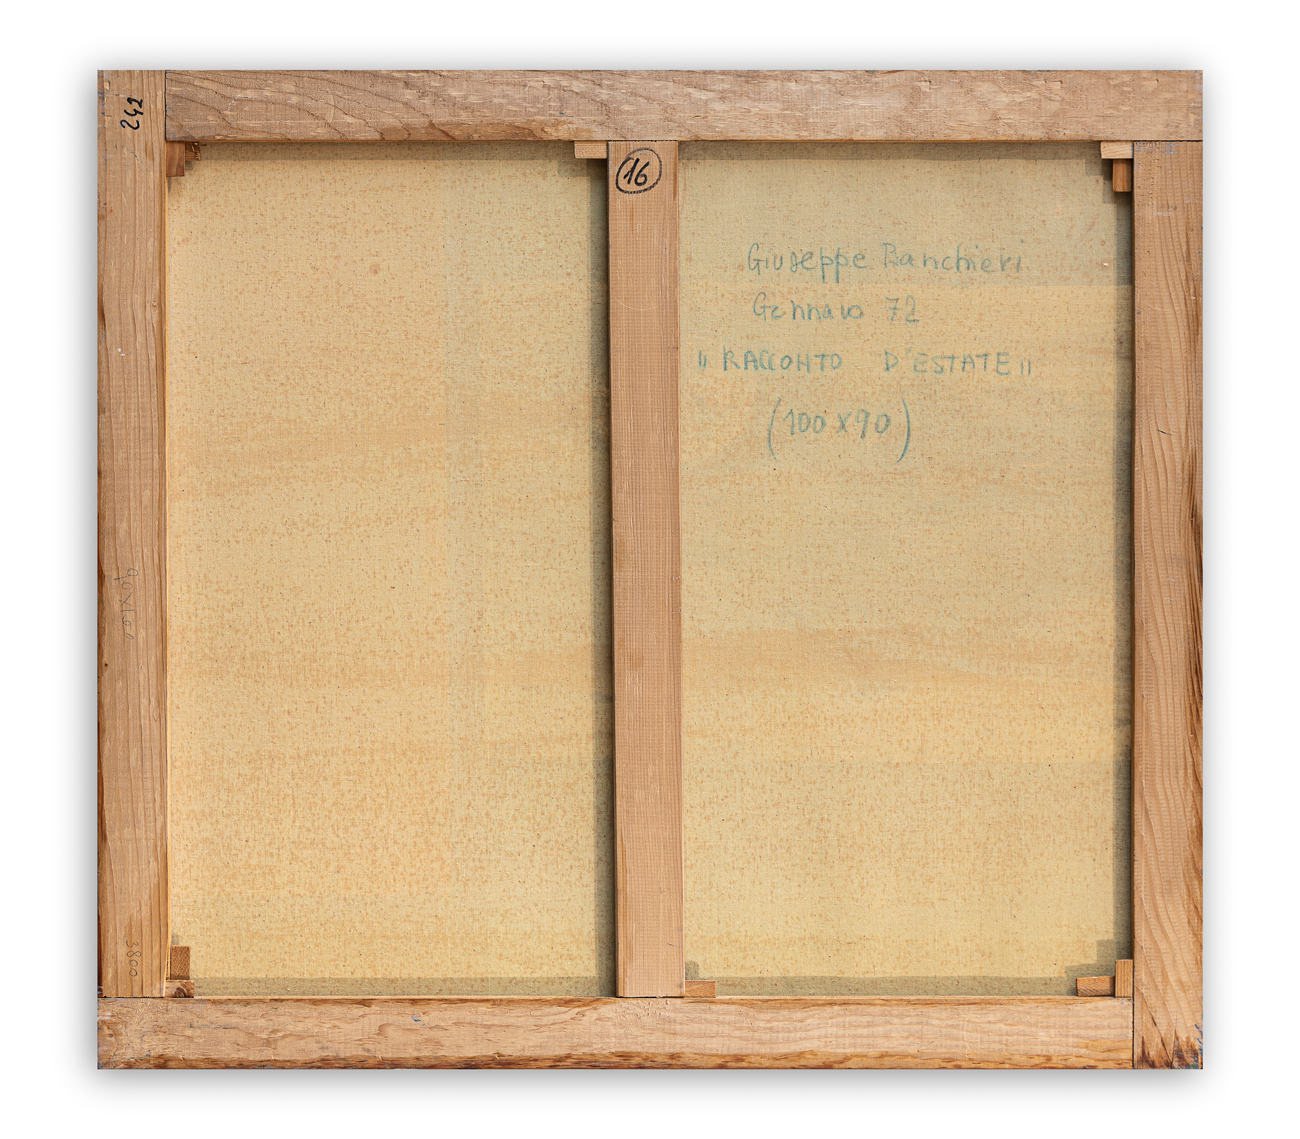 242
16
Giuseppe Banchieri
Gennaio 72
" RACCONTO D'ESTATE "
(100 x 90)
90x100
3800